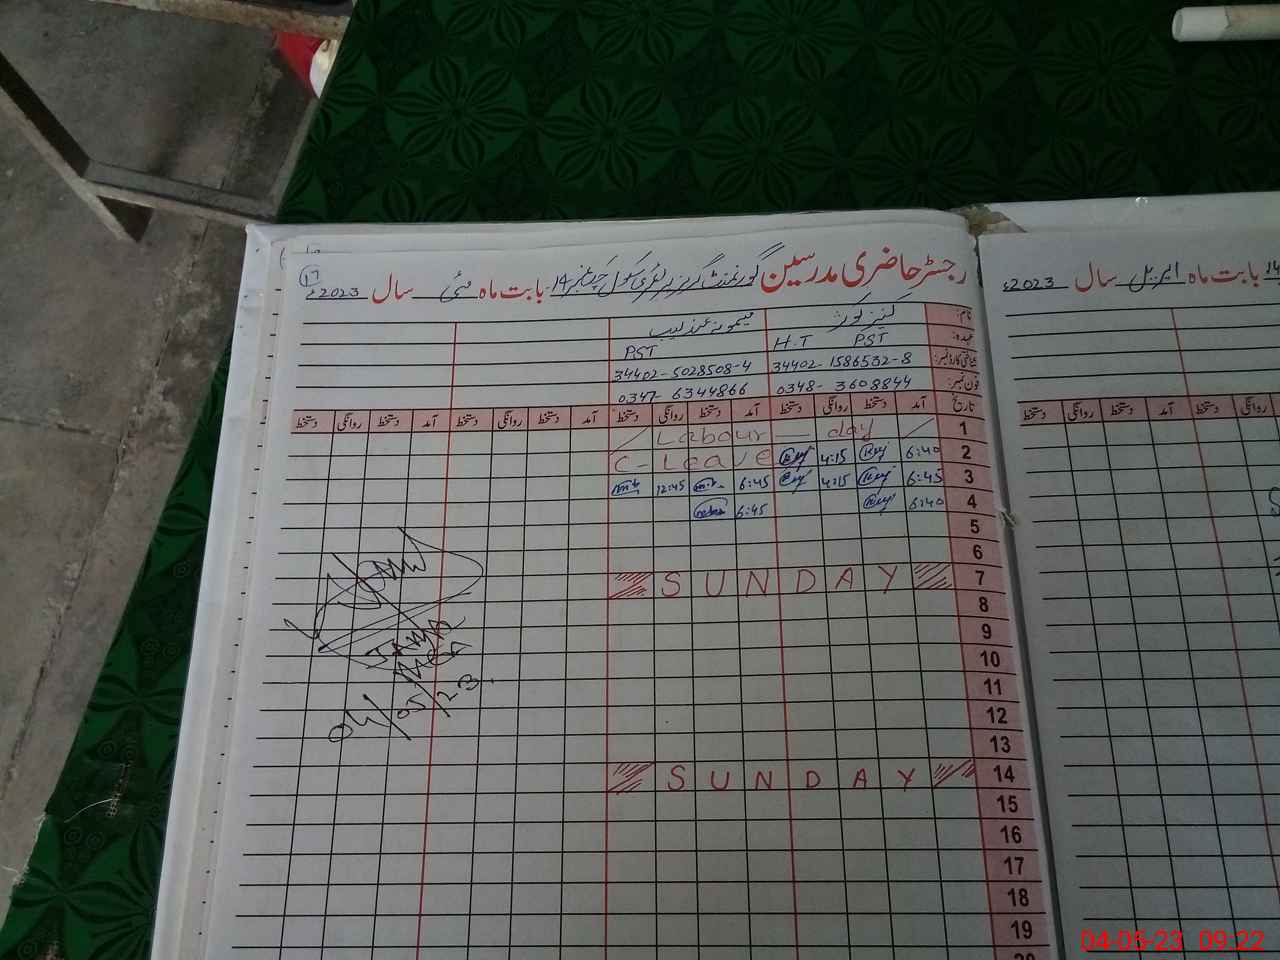 رجسٹر حاضری مدرسین گورنمنٹ گرلز پرائمری سکول چک نمبر 19 بابت ماہ مئی سال 2023ء
17
نام: کنیز کوثر میمونہ عندلیب
عہدہ: PST H.T PST
شناختی کارڈ نمبر: 34402-1586532-8 34402-5028508-4
فون نمبر: 0348-3608844 0347-6344866
تاریخ آمد دستخط روانگی دستخط آمد دستخط روانگی دستخط آمد دستخط روانگی دستخط آمد دستخط روانگی دستخط
1 Labour — day
2 6:40 4:15 C-Leave
3 6:45 4:15 6:45 12:45
4 6:40 6:45
5
6
7 SUNDAY
8
9
10
11
12
13
14 SUNDAY
15
16
17
18
19
20
04/05/23
بابت ماہ اپریل سال 2023ء
روانگی دستخط آمد دستخط روانگی دستخط
04-05-23 09:22